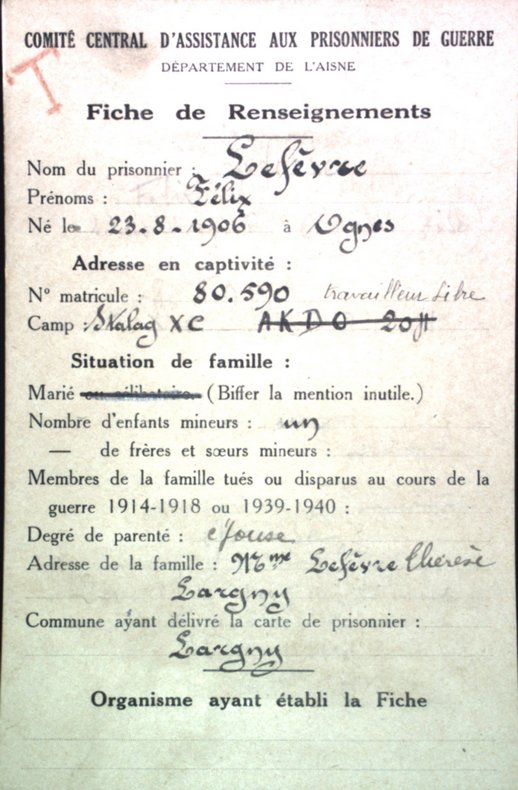 COMITÉ CENTRAL D'ASSISTANCE AUX PRISONNIERS DE GUERRE
DÉPARTEMENT DE L'AISNE
T
Fiche de Renseignements
Nom du prisonnier : Lefèvre
Prénoms : Félix
Né le 23-8-1906 à Ognes
Adresse en captivité :
N° matricule : 80.590 travailleur libre
Camp : Stalag XC AKDO 20
Situation de famille :
Marié ou célibataire. (Biffer la mention inutile.)
Nombre d'enfants mineurs : un
— de frères et sœurs mineurs :
Membres de la famille tués ou disparus au cours de la
guerre 1914-1918 ou 1939-1940 :
Degré de parenté : épouse
Adresse de la famille : Mme Lefèvre Thérèse
Largny
Commune ayant délivré la carte de prisonnier :
Largny
Organisme ayant établi la Fiche